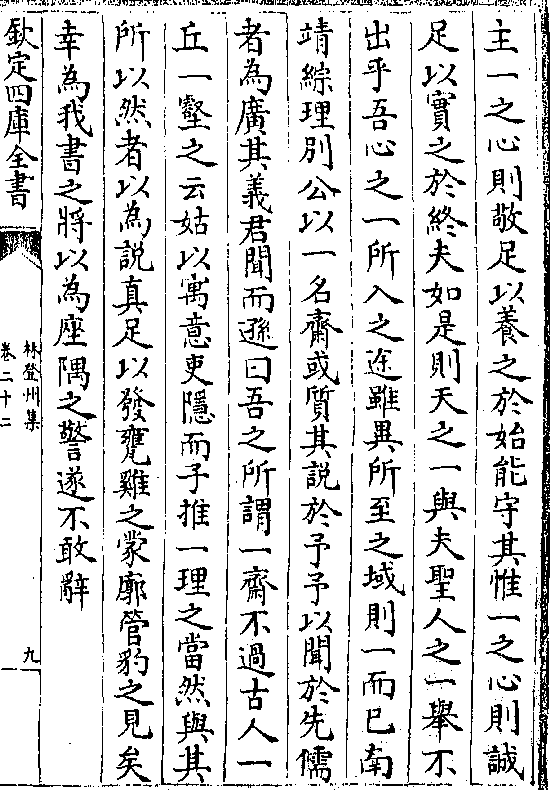 主一之心則敬足以養之於始能守其惟一之心則誠
足以實之於終夫如是則天之一與夫聖人之一舉不
出乎吾心之一所入之途雖異所至之域則一而已南
靖綜理別公以一名齋或質其說於予予以聞於先儒
者為廣其義君聞而遜曰吾之所謂一齋不過古人一
丘一壑之云姑以寓意吏隱而子推一理之當然與其
所以然者以為說真足以發甕雞之蒙廓管豹之見矣
幸為我書之將以為座隅之警遂不敢辭
欽定四庫全書
林登州集
卷二十二
九